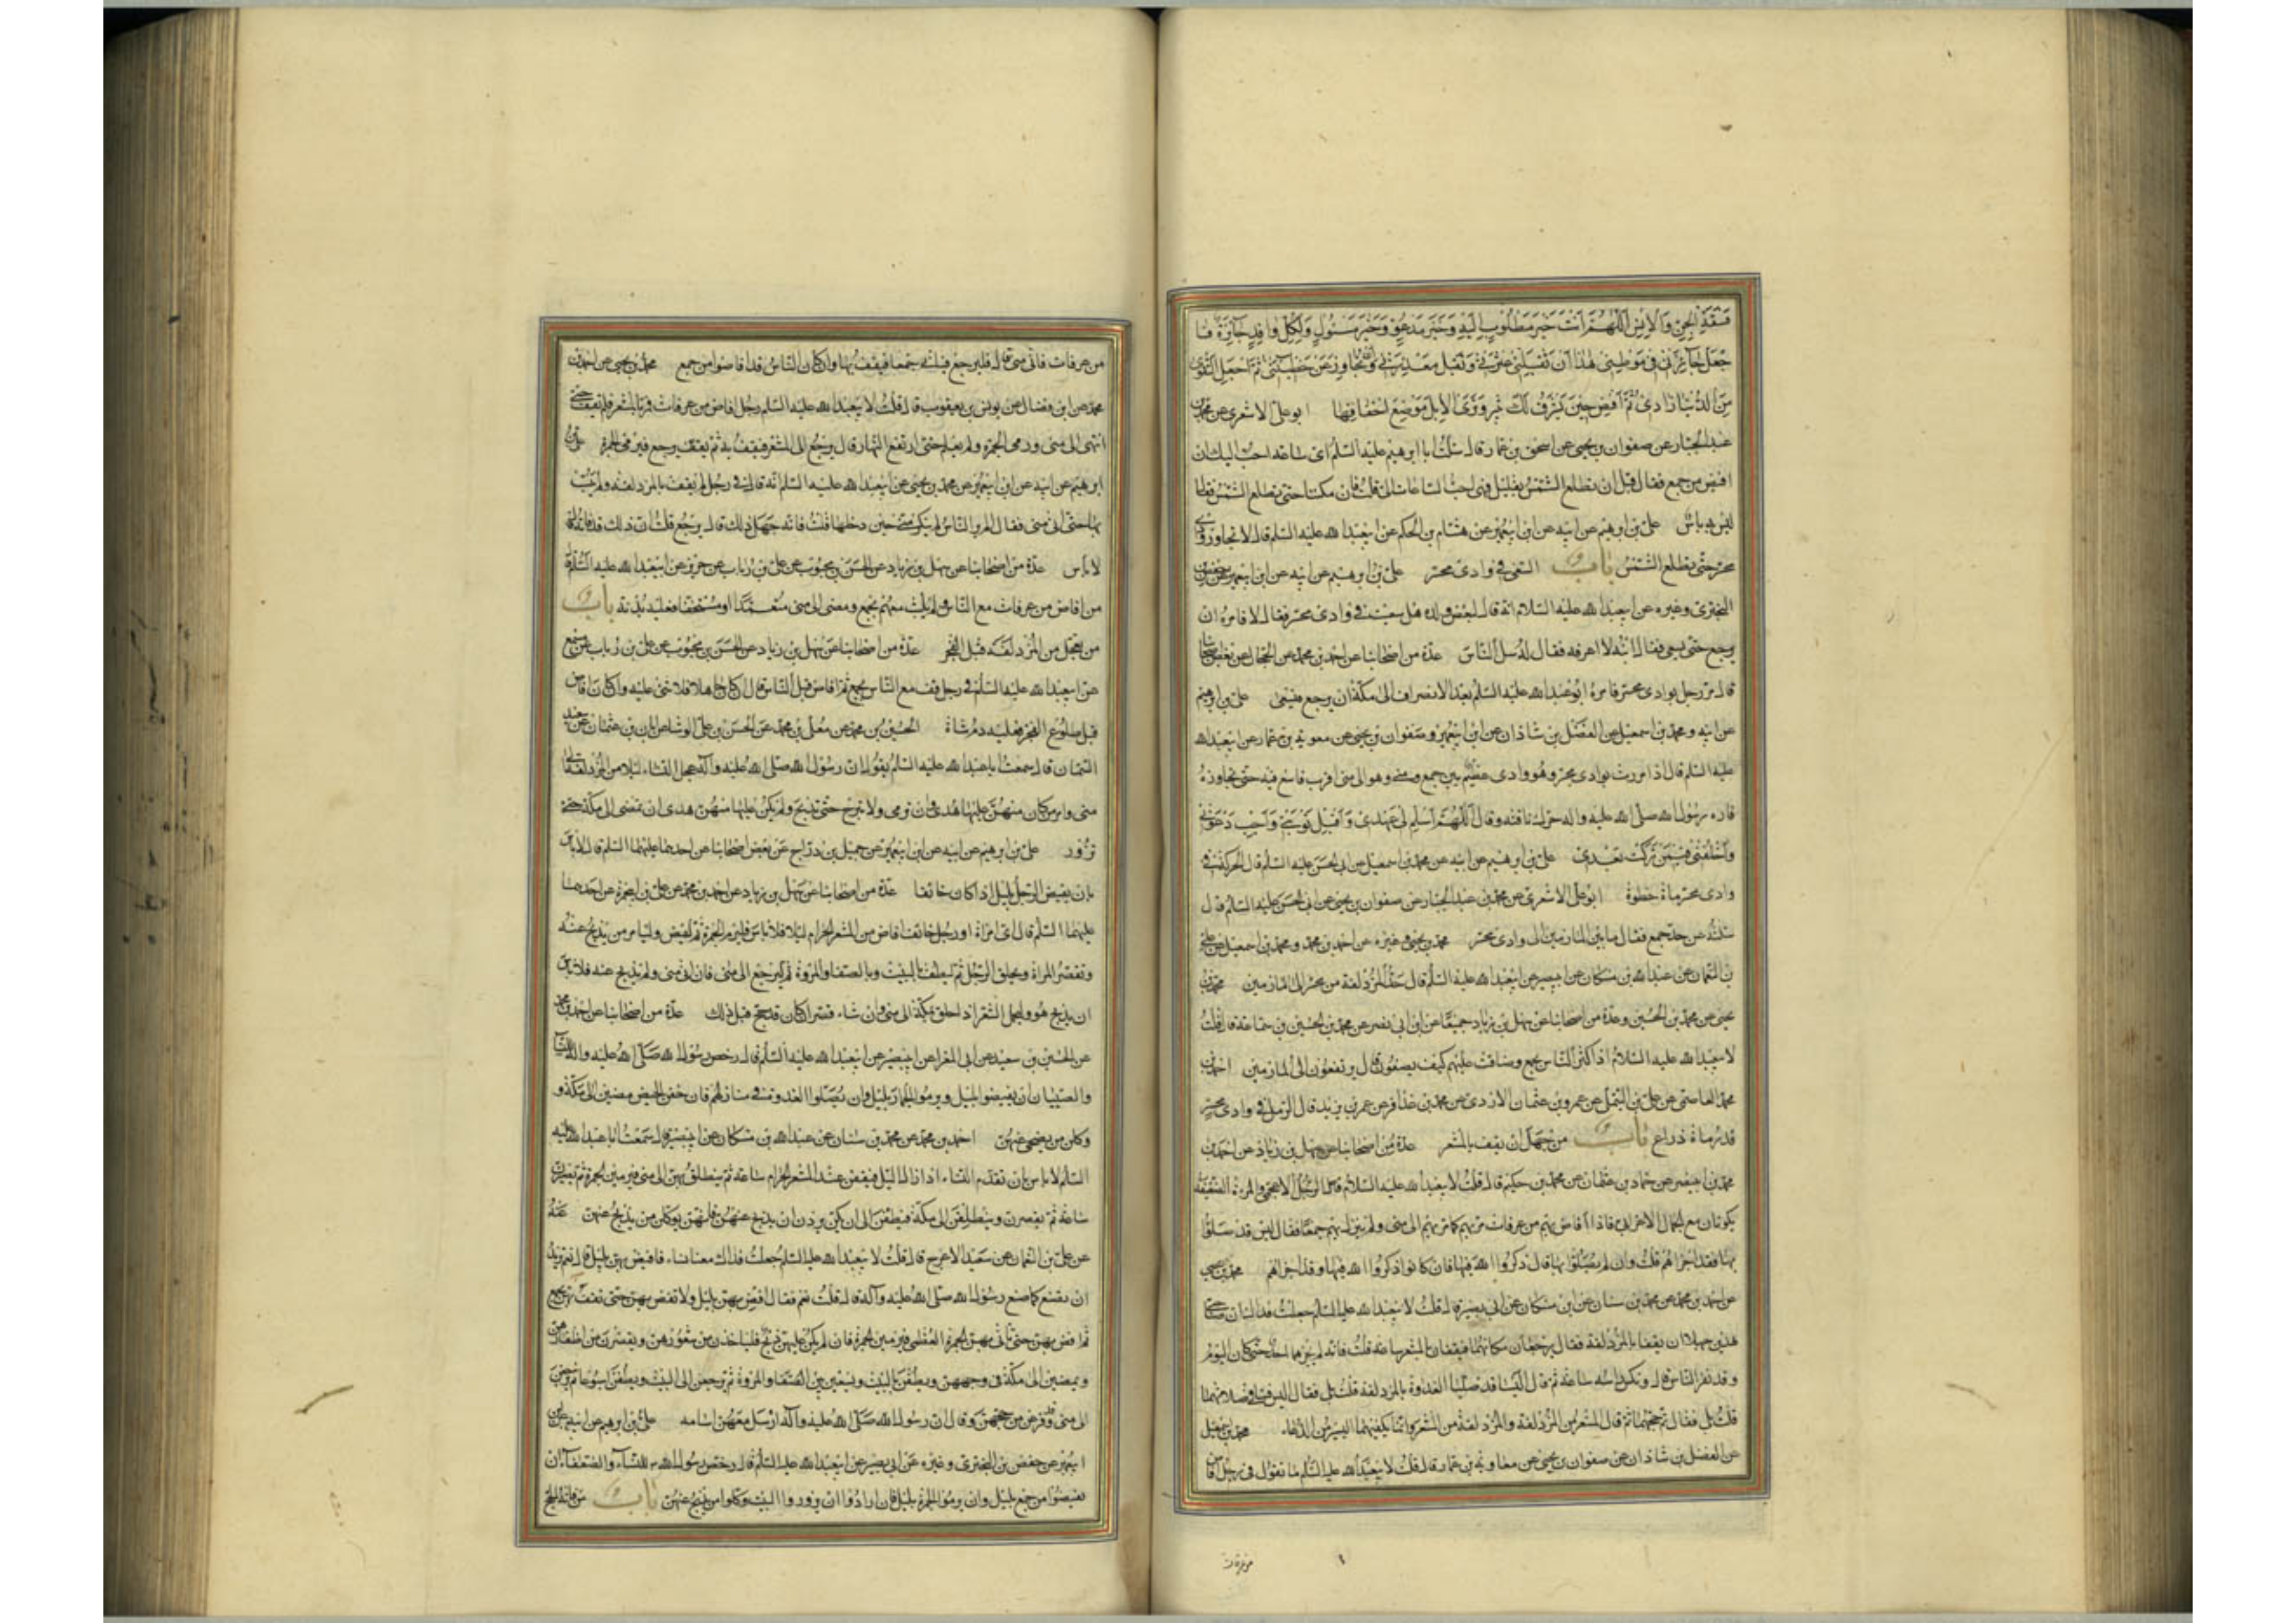 فسقة الجن والانس اللهم انت خير مطلوب اليه وخير مدعو وخير مسئول ولكل وافد جائزة فا
جعل جائزتي في موطني هذا ان تقيلني عثرتي وتقبل معذرتي وان تجاوز عن خطيئتي ثم اجعل التقوى
من الدنيا زادي ثم افض حين يشرف لك ثبير وترى الابل موضع اخفافها ابو على الاشعرى عن محمد بن
عبد الجبار عن صفوان بن يحيى عن اسحق بن عمار قال سئلت ابا ابرهيم عليه السلم اى ساعة احب اليك ان
افيض من جمع فقال قبل ان تطلع الشمس بقليل فهى احب الساعات الى قلت فان مكثنا حتى تطلع الشمس فقال
ليس به باس على بن ابرهيم عن ابيه عن ابن ابيعمير عن هشام بن الحكم عن ابيعبد الله عليه السلم قال لا تجاوز وادى
محسر حتى تطلع الشمس باب السعى في وادى محسر على بن ابرهيم عن ابيه عن ابن ابيعمير عن حفص بن
البخترى وغيره عن ابيعبد الله عليه السلام انه قال لبعض ولده هل سعيت في وادى محسر فقال لا فامره ان
يرجع حتى يسعى فقال له ابنه لا اعرفه فقال له سل الناس عدة من اصحابنا عن احمد بن محمد عن الحجال عن بعض اصحابنا
قال مر رجل بوادى محسر فامره ابو عبد الله عليه السلم بعد الانصراف الى مكة ان يرجع فيسعى على بن ابرهيم
عن ابيه ومحمد بن اسمعيل عن الفضل بن شاذان عن ابن ابيعمير وصفوان بن يحيى عن معوية بن عمار عن ابيعبد الله
عليه السلم قال اذا مررت بوادى محسر وهو وادى عظيم بين جمع ومنى وهو الى منى اقرب فاسع فيه حتى تجاوزه
فان رسول الله صلى الله عليه واله حرك ناقته وقال اللهم اسلم لى عهدى واقبل توبتى واجب دعوتى
واخلفنى فيمن تركت بعدى على بن ابرهيم عن ابيه عن محمد بن اسمعيل عن ابى الحسن عليه السلم قال الحركة في
وادى محسر ماة خطوة ابو على الاشعرى عن محمد بن عبد الجبار عن صفوان بن يحيى عن ابى الحسن عليه السلم قال
سئلته عن حد جمع فقال ما بين المازمين الى وادى محسر محمد بن يحيى وغيره عن احمد بن محمد ومحمد بن اسمعيل عن على
بن النعمان عن عبد الله بن مسكان عن ابيبصير عن ابيعبد الله عليه السلم قال حد المزدلفة من محسر الى المازمين محمد بن
يحيى عن محمد بن الحسين وعدة من اصحابنا عن سهل بن زياد جميعا عن ابن ابى نصر عن محمد بن سماعة قال قلت
لابيعبد الله عليه السلام اذا كثر الناس بجمع وضاقت عليهم كيف يصنعون قال يرتفعون الى المازمين احمد بن
محمد العاصمى عن على بن عن عمرو بن عثمان الازدى عن محمد بن عذافر عن عمر بن يزيد قال الرمل في وادى محسر
قدر ماة ذراع باب من جهل ان يقف بالمشعر عدة من اصحابنا عن سهل بن زياد عن احمد بن
محمد بن ابينصر عن حماد بن عثمان عن محمد بن حكيم قال قلت لابيعبد الله عليه السلام الرجل الاعجمى والمرءة الضعيفة
يكونان مع الجمال الاعرابى فاذا افاض بهم من عرفات مر بهم كما مر بهم الى منى ولم ينزل بهم جمعا فقال اليس قد صلوا
بها فقد اجزاهم قلت وان لم يصلوا بها قال ذكروا الله فيها فان كانوا ذكروا الله فيها فقد اجزاهم محمد بن يحيى
عن احمد بن محمد عن محمد بن سنان عن ابن مسكان عن ابى بصير قال قلت لابيعبد الله عليه السلم جعلت فداك ان صاحبى
هذين جهلا ان يقفا بالمزدلفة فقال يرجعان مكانهما فيقفان بالمشعر ساعة قلت فانه لم يخبرهما احد حتى كان اليوم
وقد نفر الناس قال ونكس راسه ساعة ثم قال اليسا قد صليا الغداة بالمزدلفة قلت بلى فقال اليس قنتا في صلاتهما
قلت بلى فقال تم حجهما ثم قال المشعر من المزدلفة والمزدلفة من المشعر وانما يكفيهما اليسير من الدعاء محمد بن اسمعيل
عن الفضل بن شاذان عن صفوان بن يحيى عن معاوية بن عمار قال قلت لابيعبد الله عليه السلم ما تقول في رجل افاض
من عرفات
من عرفات فاتى منى قال فليرجع فياتى جمعا فيقف بها وان كان الناس قد افاضوا من جمع محمد بن يحيى عن احمد بن
محمد عن ابن فضال عن يونس بن يعقوب قال قلت لابيعبد الله عليه السلم رجل افاض من عرفات فمر بالمشعر فلم يقف حتى
انتهى الى منى ورمى الجمرة ولم يعلم حتى ارتفع النهار قال يرجع الى المشعر فيقف به ثم يرجع فيرمى الجمرة على بن
ابرهيم عن ابيه عن ابن ابيعمير عن محمد بن يحيى عن ابيعبد الله عليه السلم انه قال في رجل لم يقف بالمزدلفة ولم يبت
بها حتى اتى منى فقال الم ير الناس لم يكونوا بمنى حين دخلها قلت فانه جهل ذلك قال يرجع قلت ان ذلك قد فاته قال
لا باس عدة من اصحابنا عن سهل بن زياد عن الحسن بن محبوب عن على بن رئاب عن حريز عن ابيعبد الله عليه السلم قال
من افاض من عرفات مع الناس ولم يلبث معهم بجمع ومضى الى منى متعمدا او مستخفا فعليه بدنة باب
من تعجل من المزدلفة قبل الفجر عدة من اصحابنا عن سهل بن زياد عن الحسن بن محبوب عن على بن رئاب عن مسمع
عن ابيعبد الله عليه السلم في رجل وقف مع الناس بجمع ثم افاض قبل الناس قال ان كان جاهلا فلا شى عليه وان كان افاض
قبل طلوع الفجر فعليه دم شاة الحسين بن محمد عن معلى بن محمد عن الحسن بن على الوشا عن ابان بن عثمان عن سعيد
السمان قال سمعت ابا عبد الله عليه السلم يقول ان رسول الله صلى الله عليه وآله عجل النساء ليلا من المزدلفة الى
منى وامر من كان منهن عليها هدى فان ترمى ولا تبرح حتى تذبح ولم يكن عليها منهن هدى ان تمضى الى مكة حتى
تزور على بن ابرهيم عن ابيه عن ابن ابيعمير عن جميل بن دراج عن بعض اصحابنا عن احدهما عليهما السلم قال لا باس
بان يفيض الرجل بليل اذا كان خائفا عدة من اصحابنا عن سهل بن زياد عن احمد بن محمد عن على بن ابيحمزة عن احدهما
عليهما السلم قال اى امراة او رجل خائف افاض من المشعر الحرام ليلا فلا باس فليرم الجمرة ثم ليمض وليامر من يذبح عنه
وتقصر المراة ويحلق الرجل ثم ليطف بالبيت وبالصفا والمروة ثم ليرجع الى منى فان اتى منى ولم يذبح عنه فلا باس
ان يذبح هو وليحمل الشعر اذا حلق بمكة الى منى وان شاء قصر ان كان قد حج قبل ذلك عدة من اصحابنا عن احمد بن محمد
عن الحسين بن سعيد عن ابى المغرا عن ابيبصير عن ابيعبد الله عليه السلم قال رخص رسول الله صلى الله عليه واله للنساء
والصبيان ان يفيضوا بليل ويرموا الجمار بليل وان يصلوا الغداة في منازلهم فان خفن الحيض مضين الى مكة و
وكلن من يضحى عنهن احمد بن محمد عن محمد بن سنان عن عبد الله بن مسكان عن ابيبصير قال سمعت ابا عبد الله عليه
السلم لا باس بان تقدم النساء اذا زال الليل فيقفن عند المشعر الحرام ساعة ثم ينطلق بهن الى منى فيرمين الجمرة ثم يصبرن
ساعة ثم يقصرن وينطلقن الى مكة فيطفن الى ان يكن يردن ان يذبح عنهن فانهن يوكلن من يذبح عنهن عنه
عن على بن النعمان عن سعيد الاعرج قال قلت لابيعبد الله عليه السلم جعلت فداك معنا نساء فافيض بهن بليل قال نعم تريد
ان تصنع كما صنع رسول الله صلى الله عليه وآله قال قلت نعم فقال افض بهن بليل ولا تفض بهن حتى تقف بهن بجمع
ثم افض بهن حتى تاتى بهن الجمرة العظمى فيرمين الجمرة فان لم يكن عليهن ذبح فلياخذن من شعورهن ويقصرن من اظفارهن
ويمضين الى مكة في وجههن ويطفن بالبيت ويسعين بين الصفا والمروة ثم يرجعن الى البيت ويطفن اسبوعا ثم يرجعن
الى منى وقد فرغن من حجهن وقال ان رسول الله صلى الله عليه وآله ارسل معهن اسامة على بن ابرهيم عن ابيه عن ابن
ابيعمير عن حفص بن البخترى وغيره عن ابى بصير عن ابيعبد الله عليه السلم قال رخص رسول الله للنساء والضعفاء ان
يفيضوا من جمع بليل وان يرموا الجمرة بليل فان ارادوا ان يزوروا البيت وكلوا من يذبح عنهن باب من فاته الحج